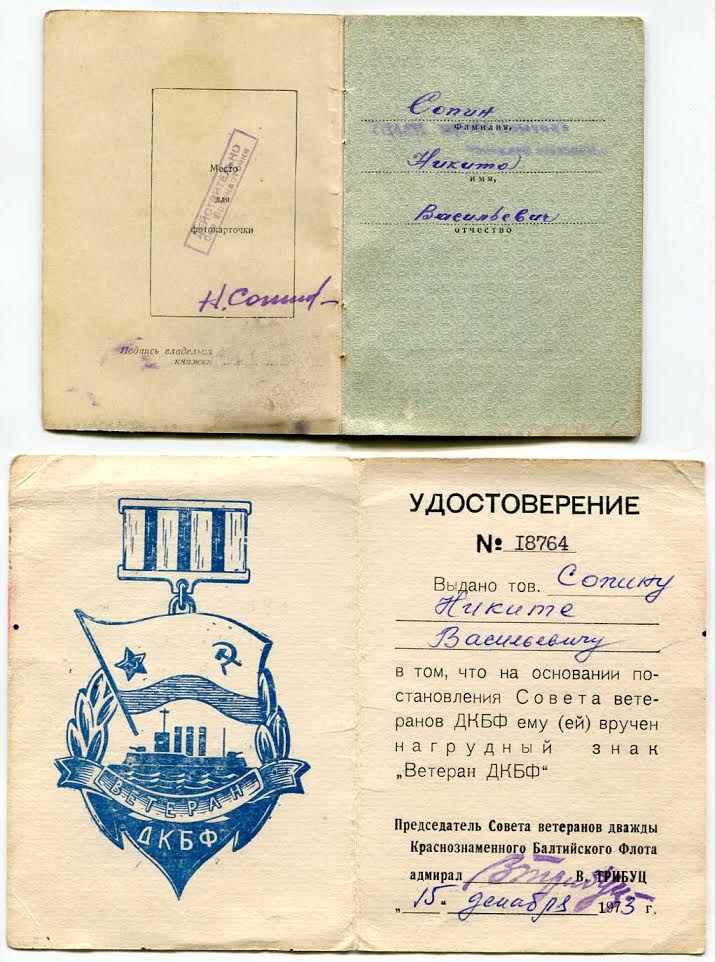 Место
для
фотокарточки
ДЕЙСТВИТЕЛЬНО
без фотокарточки
Н. Сопин
Подпись владельца
книжки
Сопин
фамилия,
Никита
имя,
Васильевич
отчество
ВЕТЕРАН
ДКБФ
УДОСТОВЕРЕНИЕ
№ I8764
Выдано тов. Сопину
Никите
Васильевичу
в том, что на основании по-
становления Совета вете-
ранов ДКБФ ему (ей) вручен
нагрудный знак
„Ветеран ДКБФ“
Председатель Совета ветеранов дважды
Краснознаменного Балтийского Флота
адмирал В. ТРИБУЦ
„15“ декабря 1973 г.